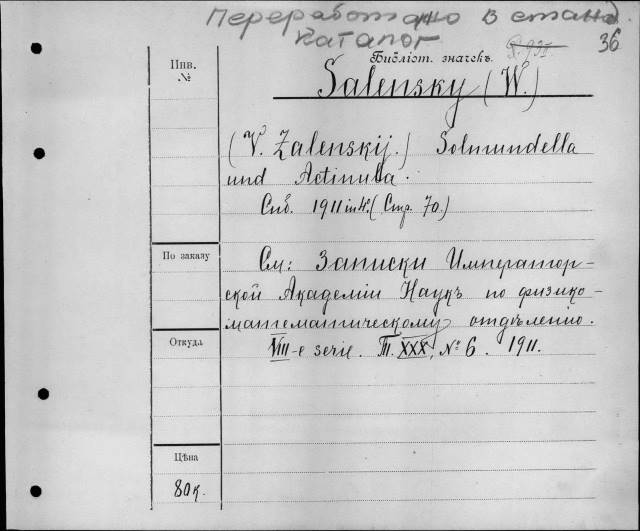 Переработано в станд.
каталог
36
Инв.
№
Библіот. значекъ.
Salensky (W.)
(V. Zalenskij.) Solmundella
und Actinula.
Спб. 1911 in 4°. (Стр. 70.)
По заказу
См: Записки Император-
ской Академіи Наукъ по физико-
математическому отдѣленію.
Откуда
VIII-e serie. Т. XXX, № 6. 1911.
Цѣна
80 к.